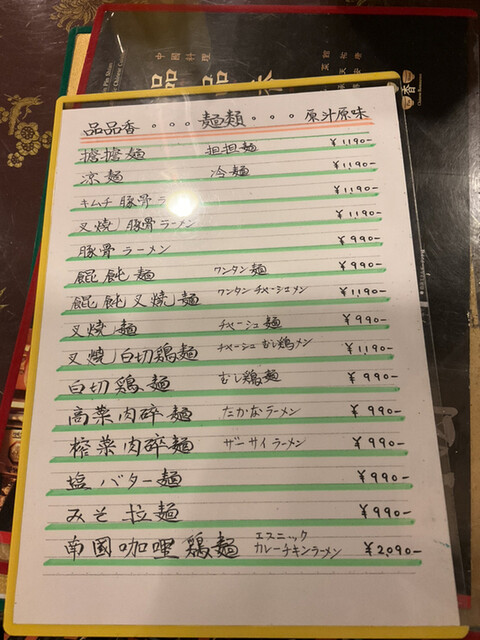 中国料理
品品香
品品香 ... 麺類 ... 原汁原味
擔擔麺 担担麺 ¥1190-
涼麺 冷麺 ¥1190-
キムチ豚骨ラーメン ¥1190-
叉焼豚骨ラーメン ¥1190-
豚骨ラーメン ¥990-
餛飩麺 ワンタン麺 ¥990-
餛飩叉焼麺 ワンタンチャーシューメン ¥1190-
叉焼麺 チャーシュー麺 ¥990-
叉焼白切鶏麺 チャーシューむし鶏メン ¥1190-
白切鶏麺 むし鶏麺 ¥990-
高菜肉碎麺 たかなラーメン ¥990-
榨菜肉碎麺 ザーサイラーメン ¥990-
塩バター麺 ¥990-
みそ拉麺 ¥990-
南國咖哩鶏麺 エスニックカレーチキンラーメン ¥2,090-